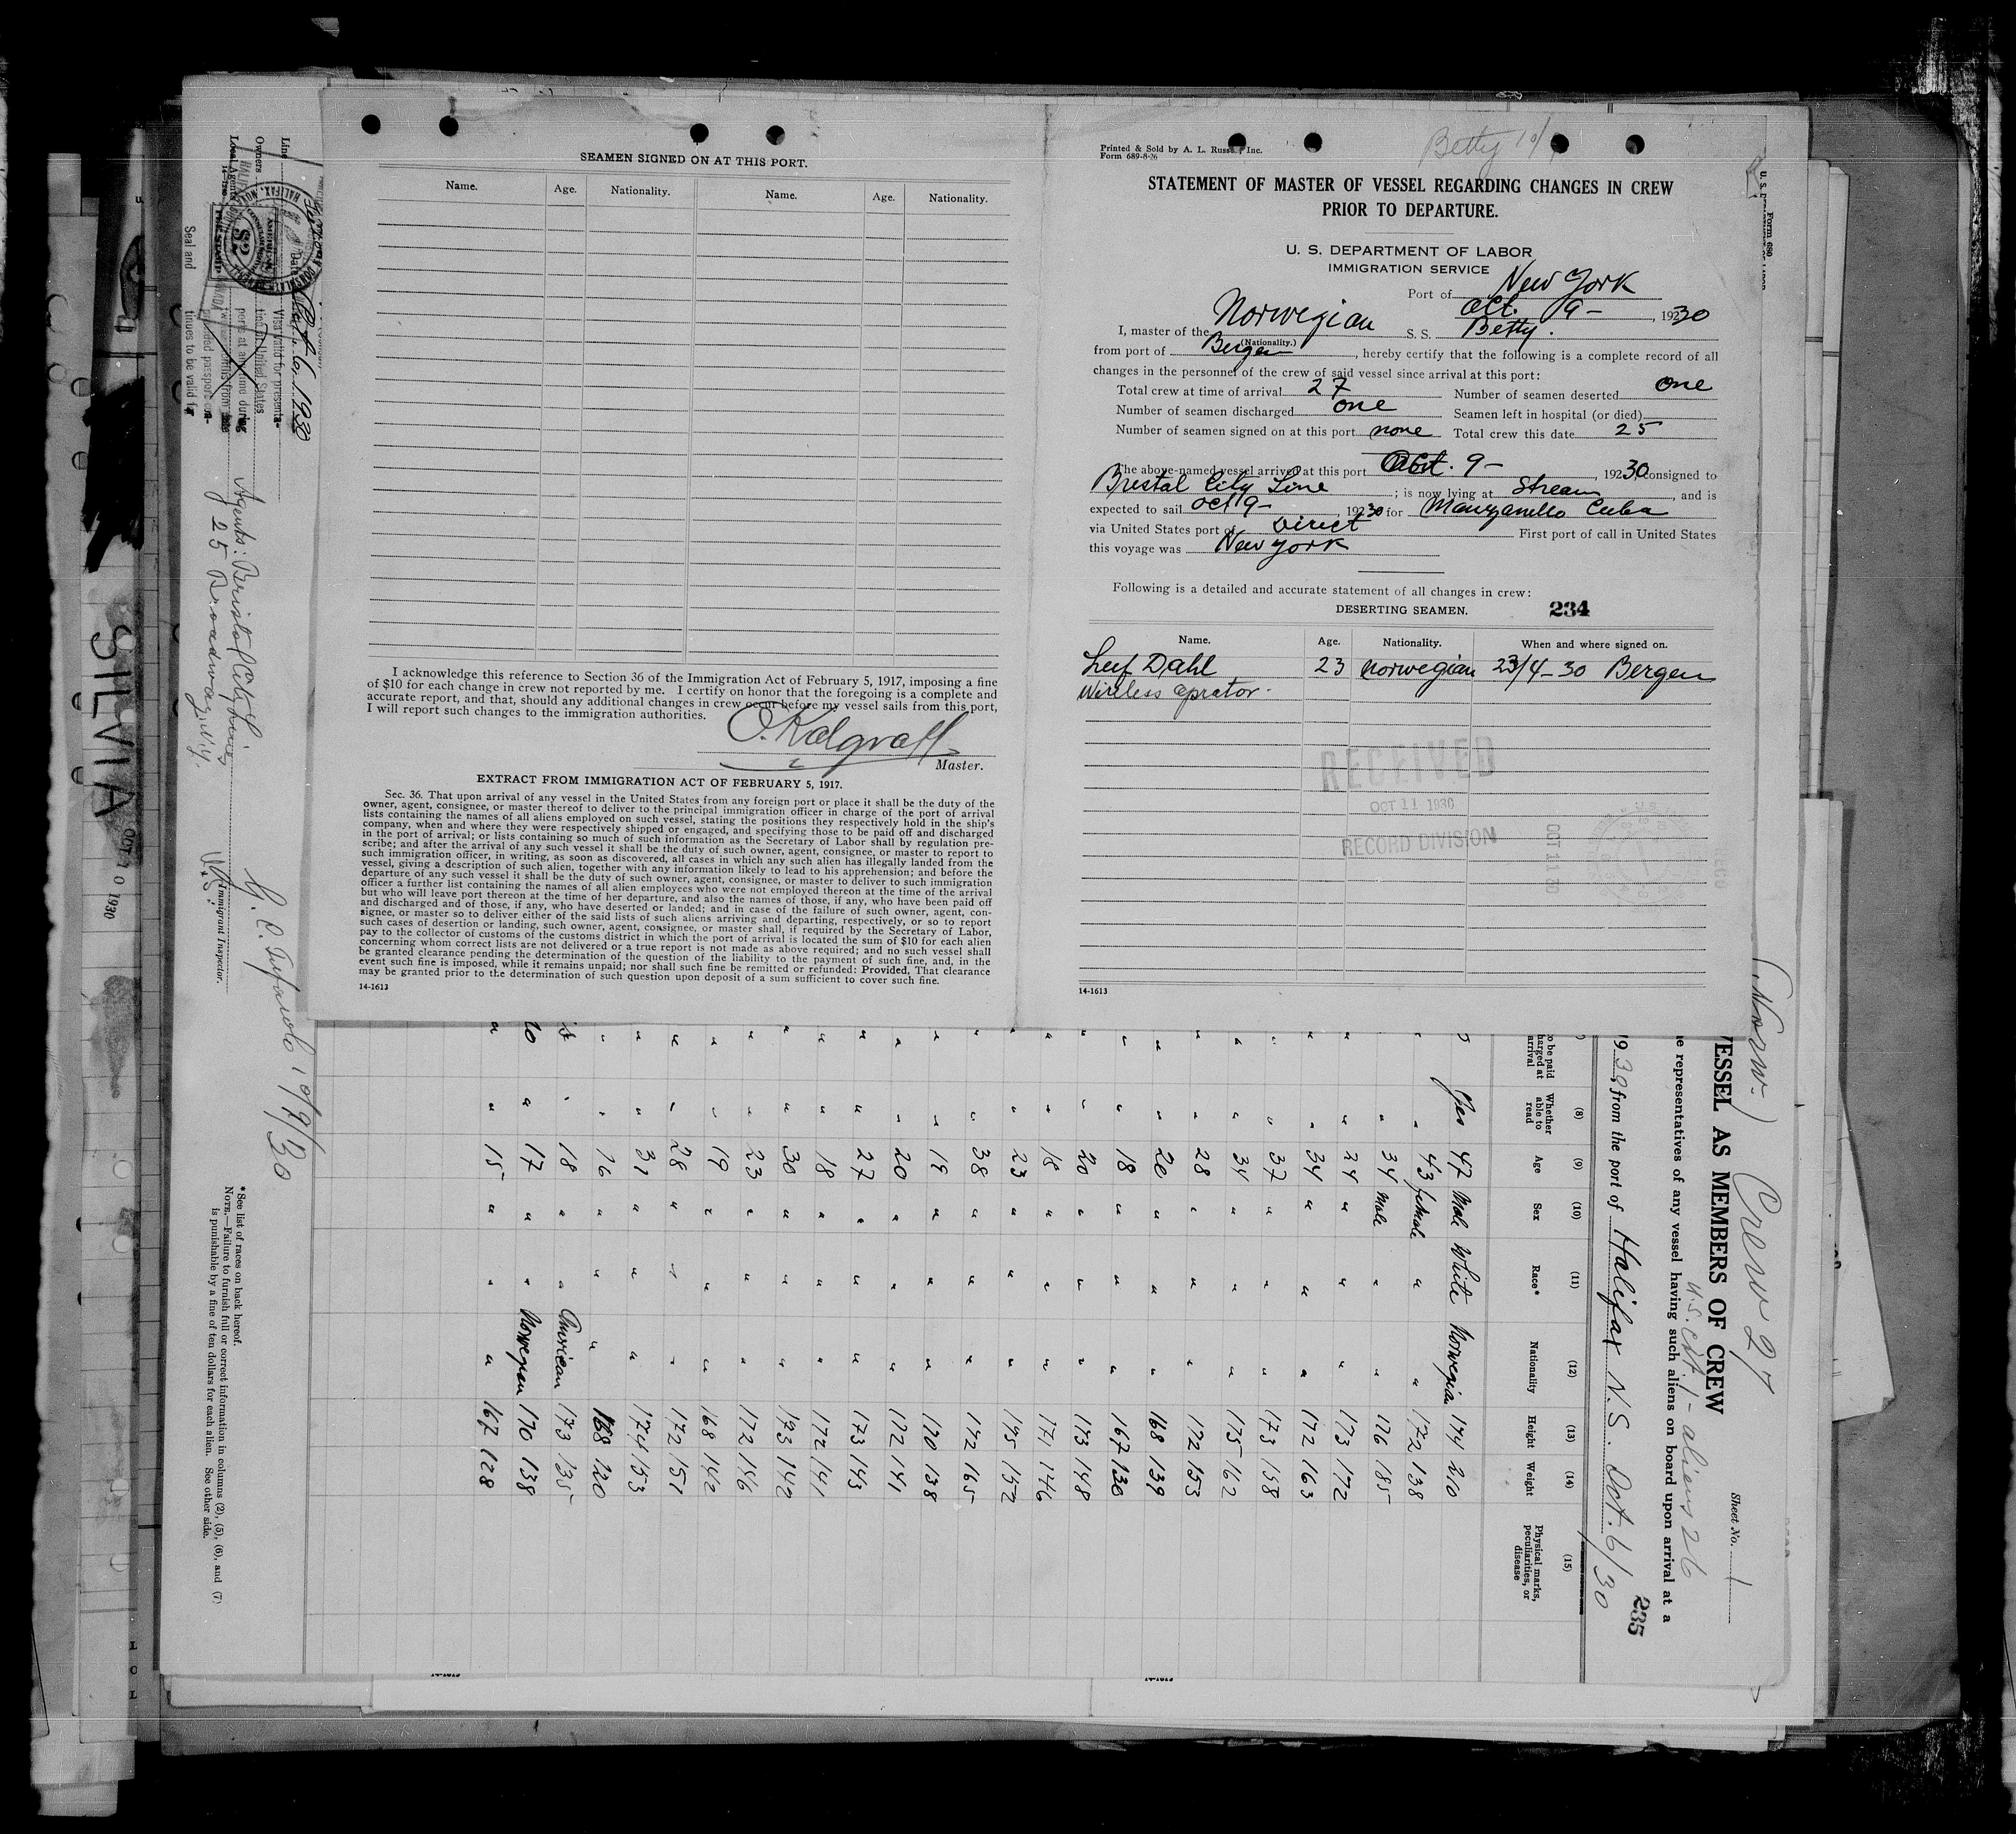 SEAMEN SIGNED ON AT THIS PORT.
Name. Age. Nationality. Name. Age. Nationality.
I acknowledge this reference to Section 36 of the Immigration Act of February 5, 1917, imposing a fine
of $10 for each change in crew not reported by me. I certify on honor that the foregoing is a complete and
accurate report, and that, should any additional changes in crew occur before my vessel sails from this port,
I will report such changes to the immigration authorities.
O. Kalgraff
Master.
EXTRACT FROM IMMIGRATION ACT OF FEBRUARY 5, 1917.
Sec. 36. That upon arrival of any vessel in the United States from any foreign port or place it shall be the duty of the
owner, agent, consignee, or master thereof to deliver to the principal immigration officer in charge of the port of arrival
lists containing the names of all aliens employed on such vessel, stating the positions they respectively hold in the ship's
company, when and where they were respectively shipped or engaged, and specifying those to be paid off and discharged
in the port of arrival; or lists containing so much of such information as the Secretary of Labor shall by regulation pre-
scribe; and after the arrival of any such vessel it shall be the duty of such owner, agent, consignee, or master to report to
such immigration officer, in writing, as soon as discovered, all cases in which any such alien has illegally landed from the
vessel, giving a description of such alien, together with any information likely to lead to his apprehension; and before the
departure of any such vessel it shall be the duty of such owner, agent, consignee, or master to deliver to such immigration
officer a further list containing the names of all alien employees who were not employed thereon at the time of the arrival
but who will leave port thereon at the time of her departure, and also the names of those, if any, who have been paid off
and discharged and of those, if any, who have deserted or landed; and in case of the failure of such owner, agent, con-
signee, or master so to deliver either of the said lists of such aliens arriving and departing, respectively, or so to report
such cases of desertion or landing, such owner, agent, consignee, or master shall, if required by the Secretary of Labor,
pay to the collector of customs of the customs district in which the port of arrival is located the sum of $10 for each alien
concerning whom correct lists are not delivered or a true report is not made as above required; and no such vessel shall
be granted clearance pending the determination of the question of the liability to the payment of such fine, and, in the
event such fine is imposed, while it remains unpaid; nor shall such fine be remitted or refunded: Provided, That clearance
may be granted prior to the determination of such question upon deposit of a sum sufficient to cover such fine.
14-1613
Betty 10/
Printed & Sold by A. L. Russell, Inc.
Form 689-8-26
STATEMENT OF MASTER OF VESSEL REGARDING CHANGES IN CREW
PRIOR TO DEPARTURE.
U. S. DEPARTMENT OF LABOR
IMMIGRATION SERVICE
Port of New York
Oct. 9 - , 1930
I, master of the Norwegian S. S. Betty.
(Nationality.)
from port of Bergen, hereby certify that the following is a complete record of all
changes in the personnel of the crew of said vessel since arrival at this port:
Total crew at time of arrival 27 Number of seamen deserted one
Number of seamen discharged one Seamen left in hospital (or died)
Number of seamen signed on at this port none Total crew this date 25
The above-named vessel arrived at this port Oct. 9 - , 1930, consigned to
Brestal City Line; is now lying at Stream, and is
expected to sail Oct 9 - , 1930 for Manzanillo Cuba
via United States port of Direct First port of call in United States
this voyage was New York
Following is a detailed and accurate statement of all changes in crew:
DESERTING SEAMEN. 234
Name. Age. Nationality. When and where signed on.
Leif Dahl 23 norwegian 23/4-30 Bergen
Wireless oprator.
RECEIVED
OCT 11 1930
RECORD DIVISION
OCT 11 30
14-1613
(Norw.) Crew 27
Sheet No. 1
VESSEL AS MEMBERS OF CREW
U.S. Cit. 1 - aliens 26
e representatives of any vessel having such aliens on board upon arrival at a
1930, from the port of Halifax N.S. Oct. 6/30
235
(8) (9) (10) (11) (12) (13) (14) (15)
o be paid harged at arrival Whether able to read Age Sex Race* Nationality Height Weight Physical marks, peculiarities, or disease
Yes 47 Male White Norwegian 174 210
" 43 female " " 172 138
" 34 Male " " 176 185
" 24 " " " 173 172
" 34 " " " 172 163
" 37 " " " 173 158
" 34 " " " 175 162
" 28 " " " 172 153
" 20 " " " 168 139
" 18 " " " 167 130
" 20 " " " 173 148
" 18 " " " 171 146
" 23 " " " 175 152
" 38 " " " 172 165
" 19 " " " 170 138
" 20 " " " 172 141
" 27 " " " 173 143
" 18 " " " 172 141
" 30 " " " 173 142
" 23 " " " 172 146
" 19 " " " 168 142
" 28 " " " 172 151
" 31 " " " 174 153
" 16 " " " 168 120
" 18 " " American 173 135
" 17 " " Norwegian 170 138
" 15 " " " 167 128
* See list of races on back hereof.
NOTE.—Failure to furnish full or correct information in columns (2), (5), (6), and (7)
is punishable by a fine of ten dollars for each alien. See other side.
Line
Owners
Local Agents
Agents: Bristol City Line
25 Broadway, N.Y.
10/9/30
Immigrant Inspector.
Seal and
Date Oct. 6, 1930
Visa valid for presenta-
SILVIA
OCT 10 1930